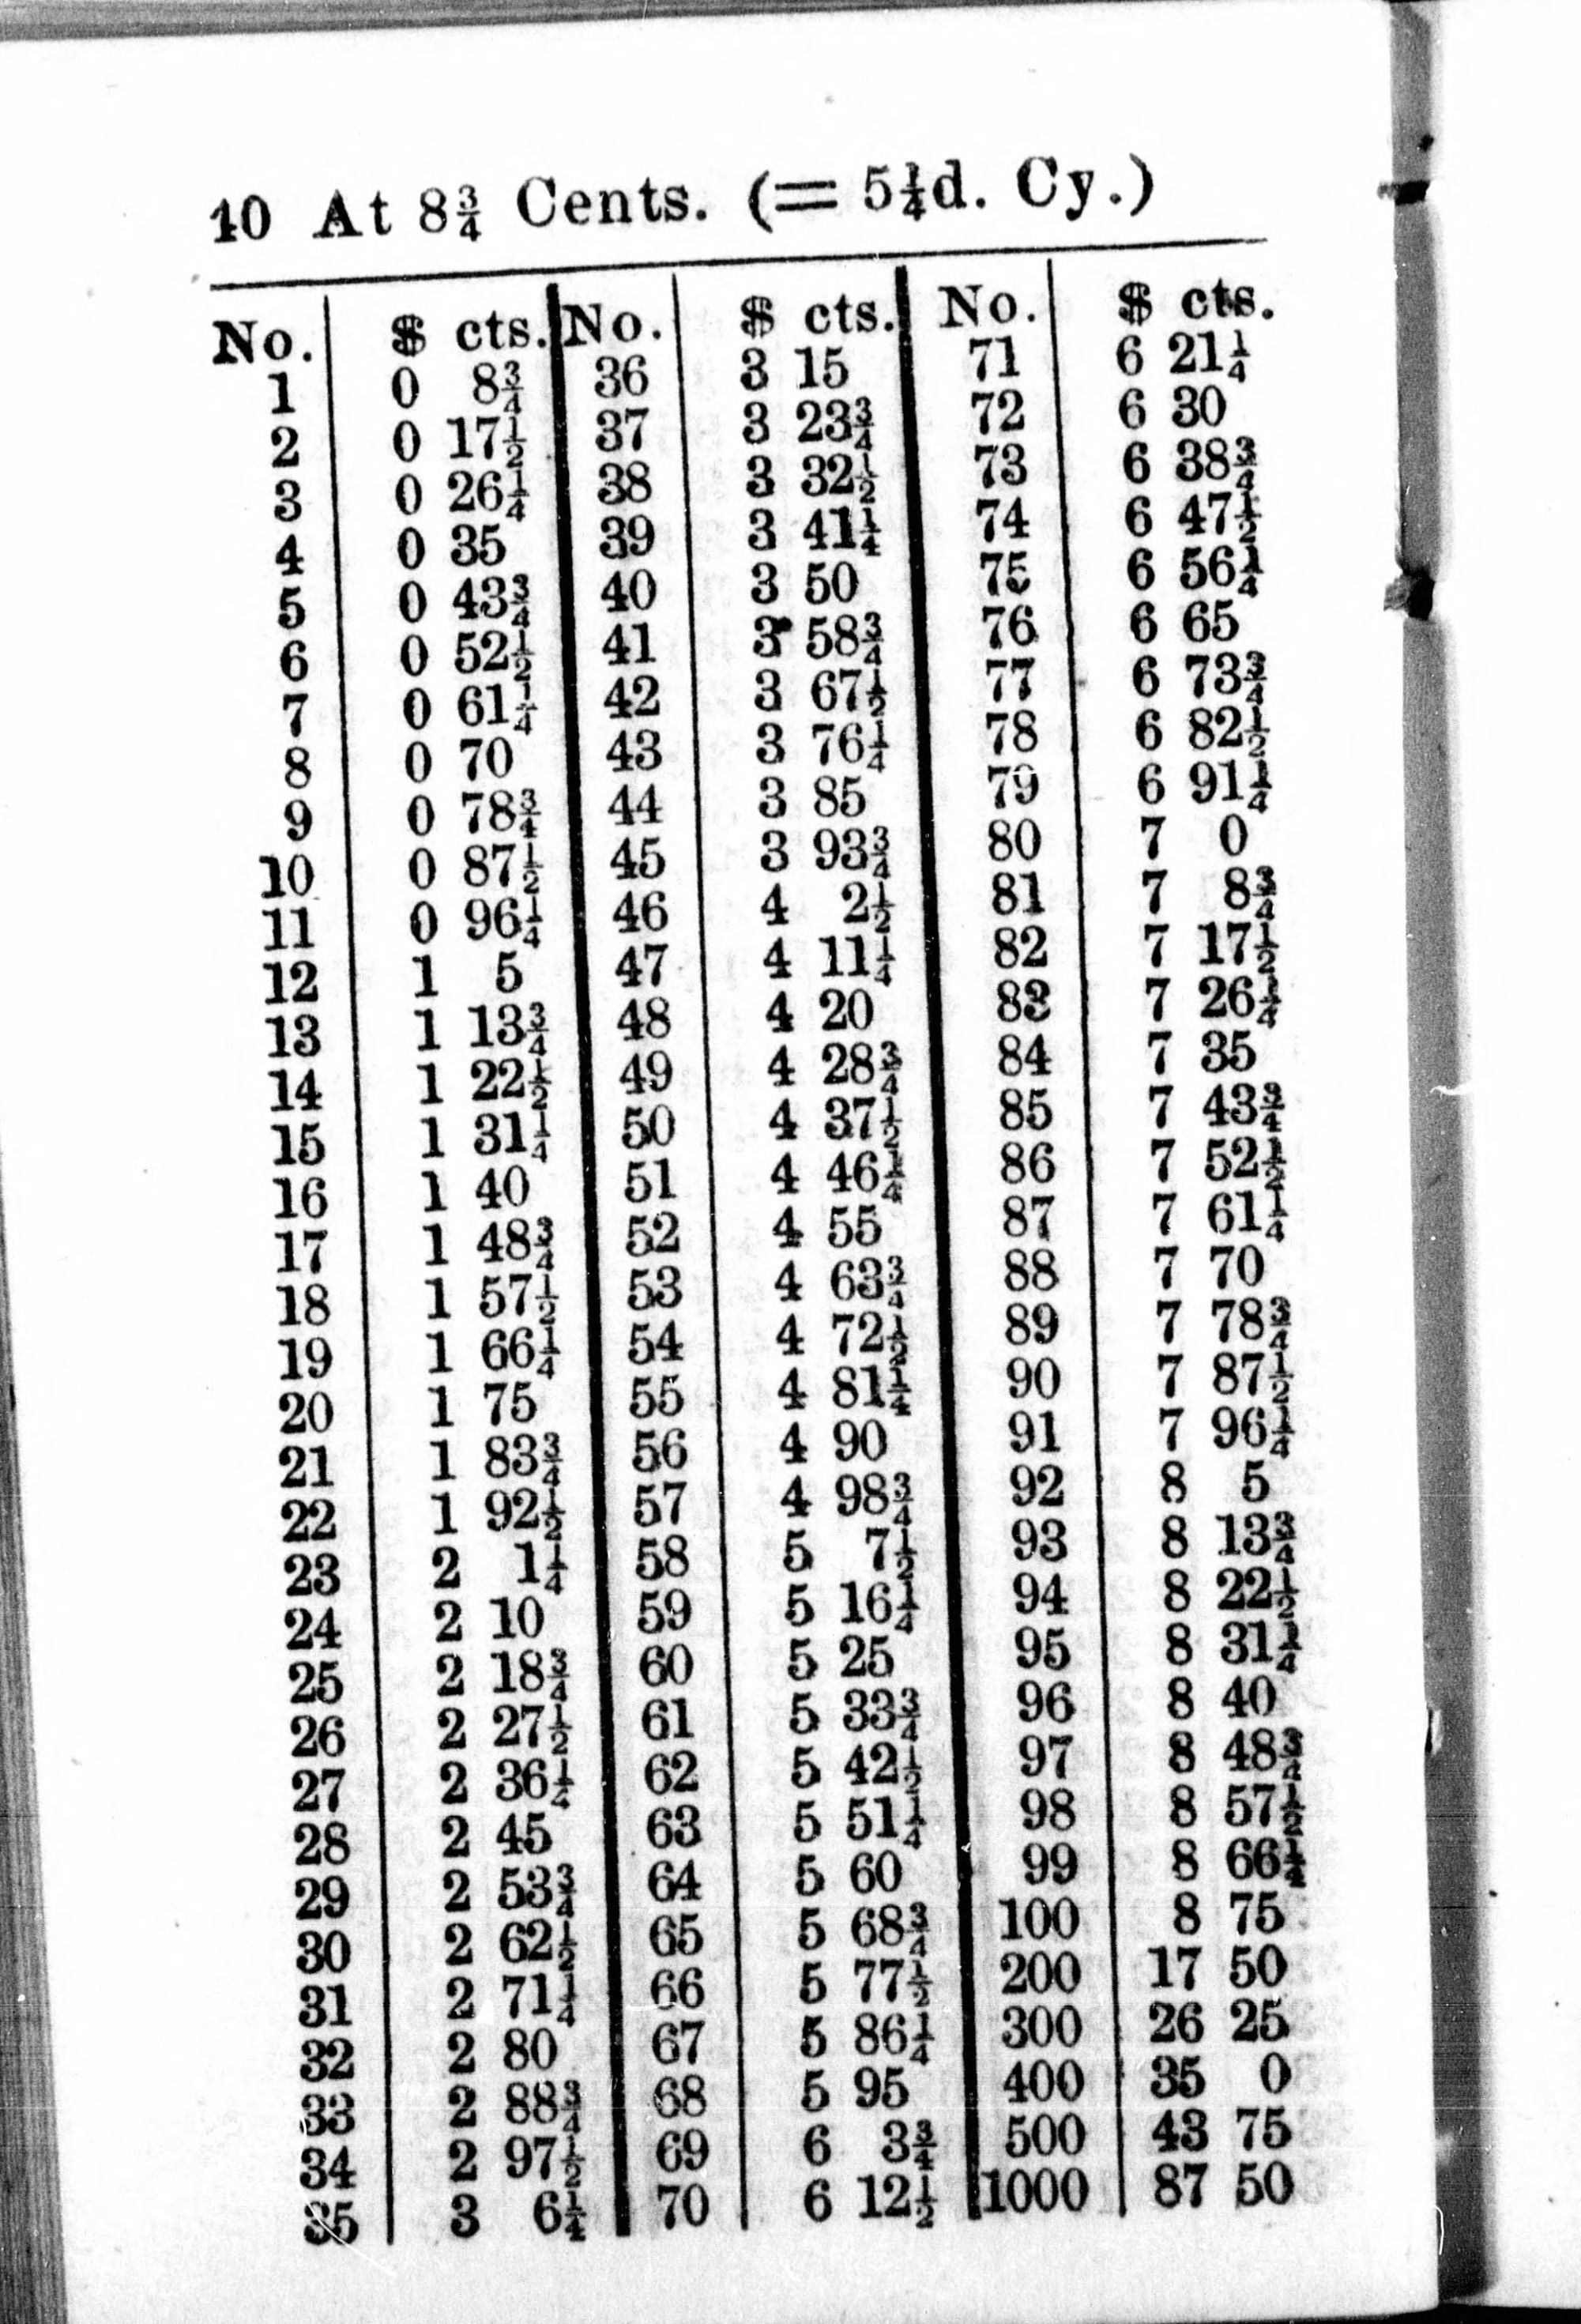 40 At 8¾ Cents. (= 5¼d. Cy.)
No. $ cts. No. $ cts. No. $ cts.
1 0 8¾ 36 3 15 71 6 21¼
2 0 17½ 37 3 23¾ 72 6 30
3 0 26¼ 38 3 32½ 73 6 38¾
4 0 35 39 3 41¼ 74 6 47½
5 0 43¾ 40 3 50 75 6 56¼
6 0 52½ 41 3 58¾ 76 6 65
7 0 61¼ 42 3 67½ 77 6 73¾
8 0 70 43 3 76¼ 78 6 82½
9 0 78¾ 44 3 85 79 6 91¼
10 0 87½ 45 3 93¾ 80 7 0
11 0 96¼ 46 4 2½ 81 7 8¾
12 1 5 47 4 11¼ 82 7 17½
13 1 13¾ 48 4 20 83 7 26¼
14 1 22½ 49 4 28¾ 84 7 35
15 1 31¼ 50 4 37½ 85 7 43¾
16 1 40 51 4 46¼ 86 7 52½
17 1 48¾ 52 4 55 87 7 61¼
18 1 57½ 53 4 63¾ 88 7 70
19 1 66¼ 54 4 72½ 89 7 78¾
20 1 75 55 4 81¼ 90 7 87½
21 1 83¾ 56 4 90 91 7 96¼
22 1 92½ 57 4 98¾ 92 8 5
23 2 1¼ 58 5 7½ 93 8 13¾
24 2 10 59 5 16¼ 94 8 22½
25 2 18¾ 60 5 25 95 8 31¼
26 2 27½ 61 5 33¾ 96 8 40
27 2 36¼ 62 5 42½ 97 8 48¾
28 2 45 63 5 51¼ 98 8 57½
29 2 53¾ 64 5 60 99 8 66¼
30 2 62½ 65 5 68¾ 100 8 75
31 2 71¼ 66 5 77½ 200 17 50
32 2 80 67 5 86¼ 300 26 25
33 2 88¾ 68 5 95 400 35 0
34 2 97½ 69 6 3¾ 500 43 75
35 3 6¼ 70 6 12½ 1000 87 50